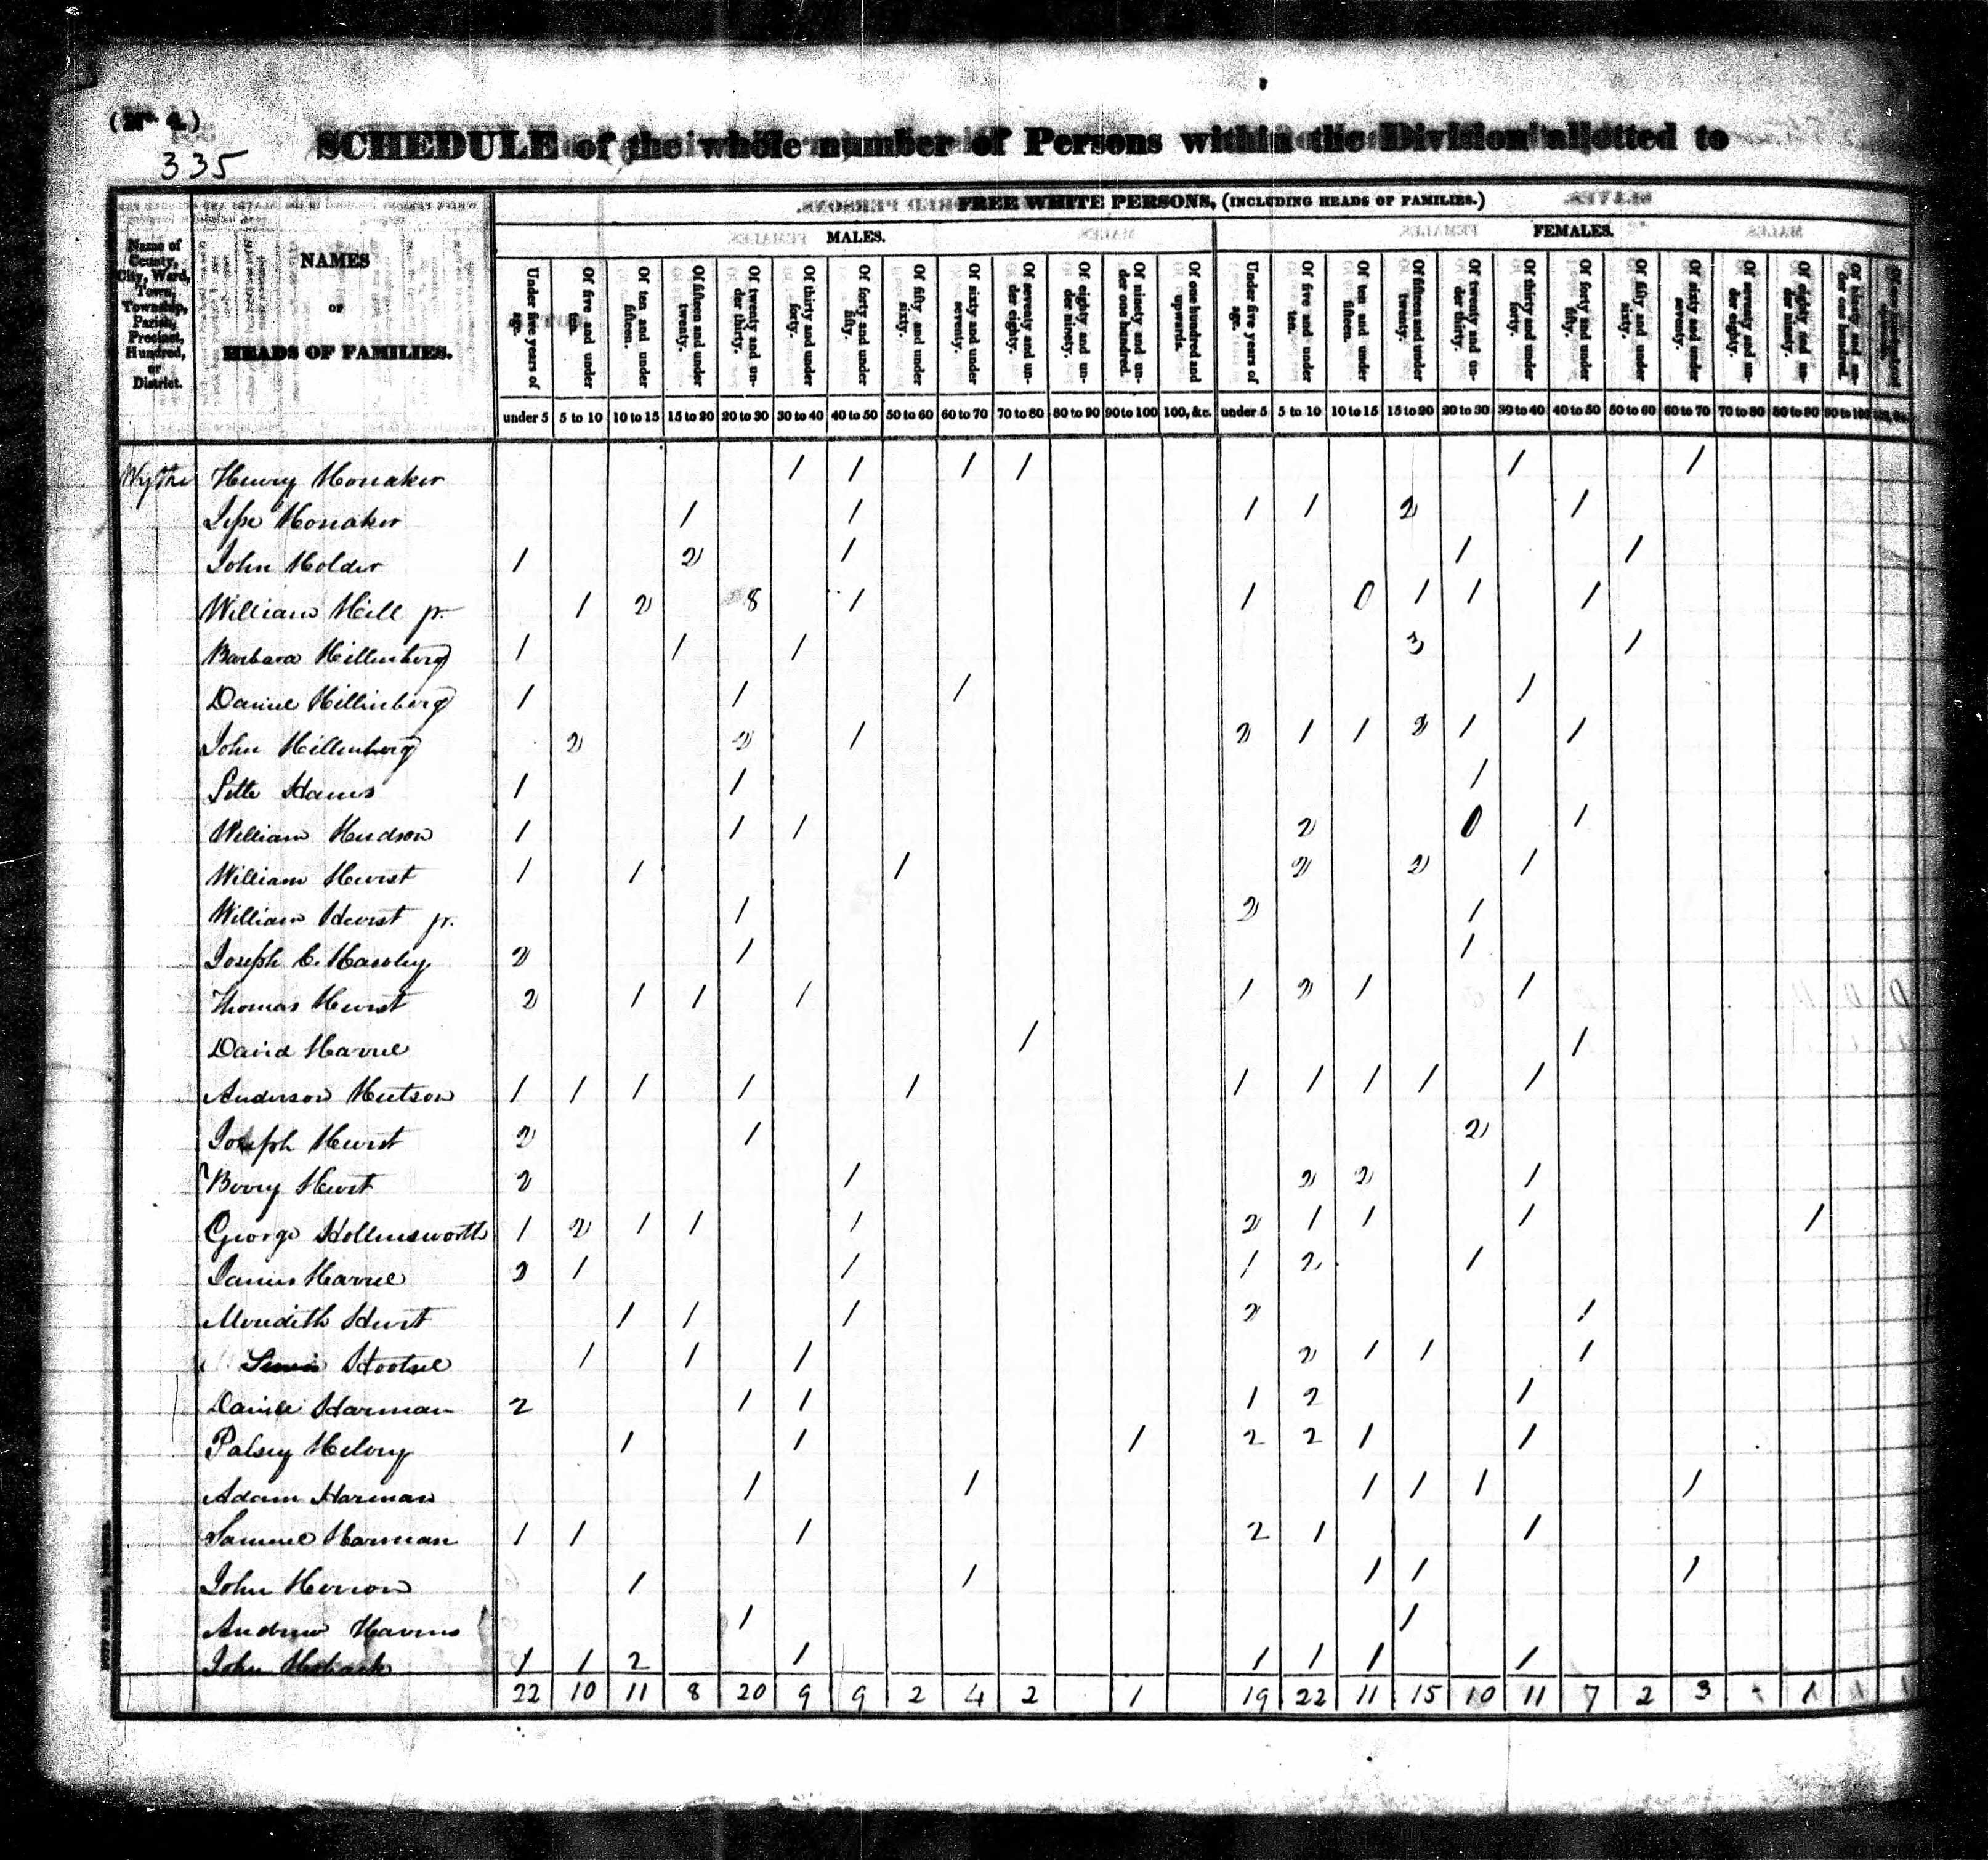 (No. 4.)
335
SCHEDULE of the whole number of Persons within the Division allotted to
FREE WHITE PERSONS, (INCLUDING HEADS OF FAMILIES.)
MALES. FEMALES.
Name of County, City, Ward, Town, Township, Parish, Precinct, Hundred, or District.
NAMES OF HEADS OF FAMILIES.
Under five years of age. Of five and under ten. Of ten and under fifteen. Of fifteen and under twenty. Of twenty and under thirty. Of thirty and under forty. Of forty and under fifty. Of fifty and under sixty. Of sixty and under seventy. Of seventy and under eighty. Of eighty and under ninety. Of ninety and under one hundred. Of one hundred and upwards. Under five years of age. Of five and under ten. Of ten and under fifteen. Of fifteen and under twenty. Of twenty and under thirty. Of thirty and under forty. Of forty and under fifty. Of fifty and under sixty. Of sixty and under seventy. Of seventy and under eighty. Of eighty and under ninety. Of ninety and under one hundred.
under 5 5 to 10 10 to 15 15 to 20 20 to 30 30 to 40 40 to 50 50 to 60 60 to 70 70 to 80 80 to 90 90 to 100 100, &c. under 5 5 to 10 10 to 15 15 to 20 20 to 30 30 to 40 40 to 50 50 to 60 60 to 70 70 to 80 80 to 90 90 to 100
Wythe Henry Honaker 1 1 1 1 1 1
Jesse Honaker 1 1 1 1 2 1
John Holder 1 2 1 1 1
William Hill jr. 1 2 8 1 1 0 1 1 1
Barbara Hillenberg 1 1 1 3 1
Daniel Hillinberg 1 1 1 1
John Hillenberg 2 2 1 2 1 1 2 1 1
1 1 1
William Hudson 1 1 1 2 0 1
William Hurst 1 1 1 2 2 1
William Hurst jr. 1 2 1
Joseph C. Hawley 2 1 1
Thomas Hurst 2 1 1 1 1 2 1 1
David Harrel 1 1
Anderson Hutson 1 1 1 1 1 1 1 1 1 1
Joseph Hurst 2 1 2
Berry Hurt 2 1 2 2 1
George Hollinsworth 1 2 1 1 1 2 1 1 1 1
James Harrel 2 1 1 1 2 1
Meridith Hurt 1 1 1 2 1
Hootsel 1 1 1 2 1 1 1
Daniel Harman 2 1 1 1 2 1
Palsey Helvey 1 1 1 2 2 1 1
Adam Harman 1 1 1 1 1 1
Samuel Harman 1 1 1 2 1 1
John Herron 1 1 1 1 1
Andrew Havins 1 1
John 1 1 2 1 1 1 1 1
22 10 11 8 20 9 9 2 4 2 1 19 22 11 15 10 11 7 2 3 1